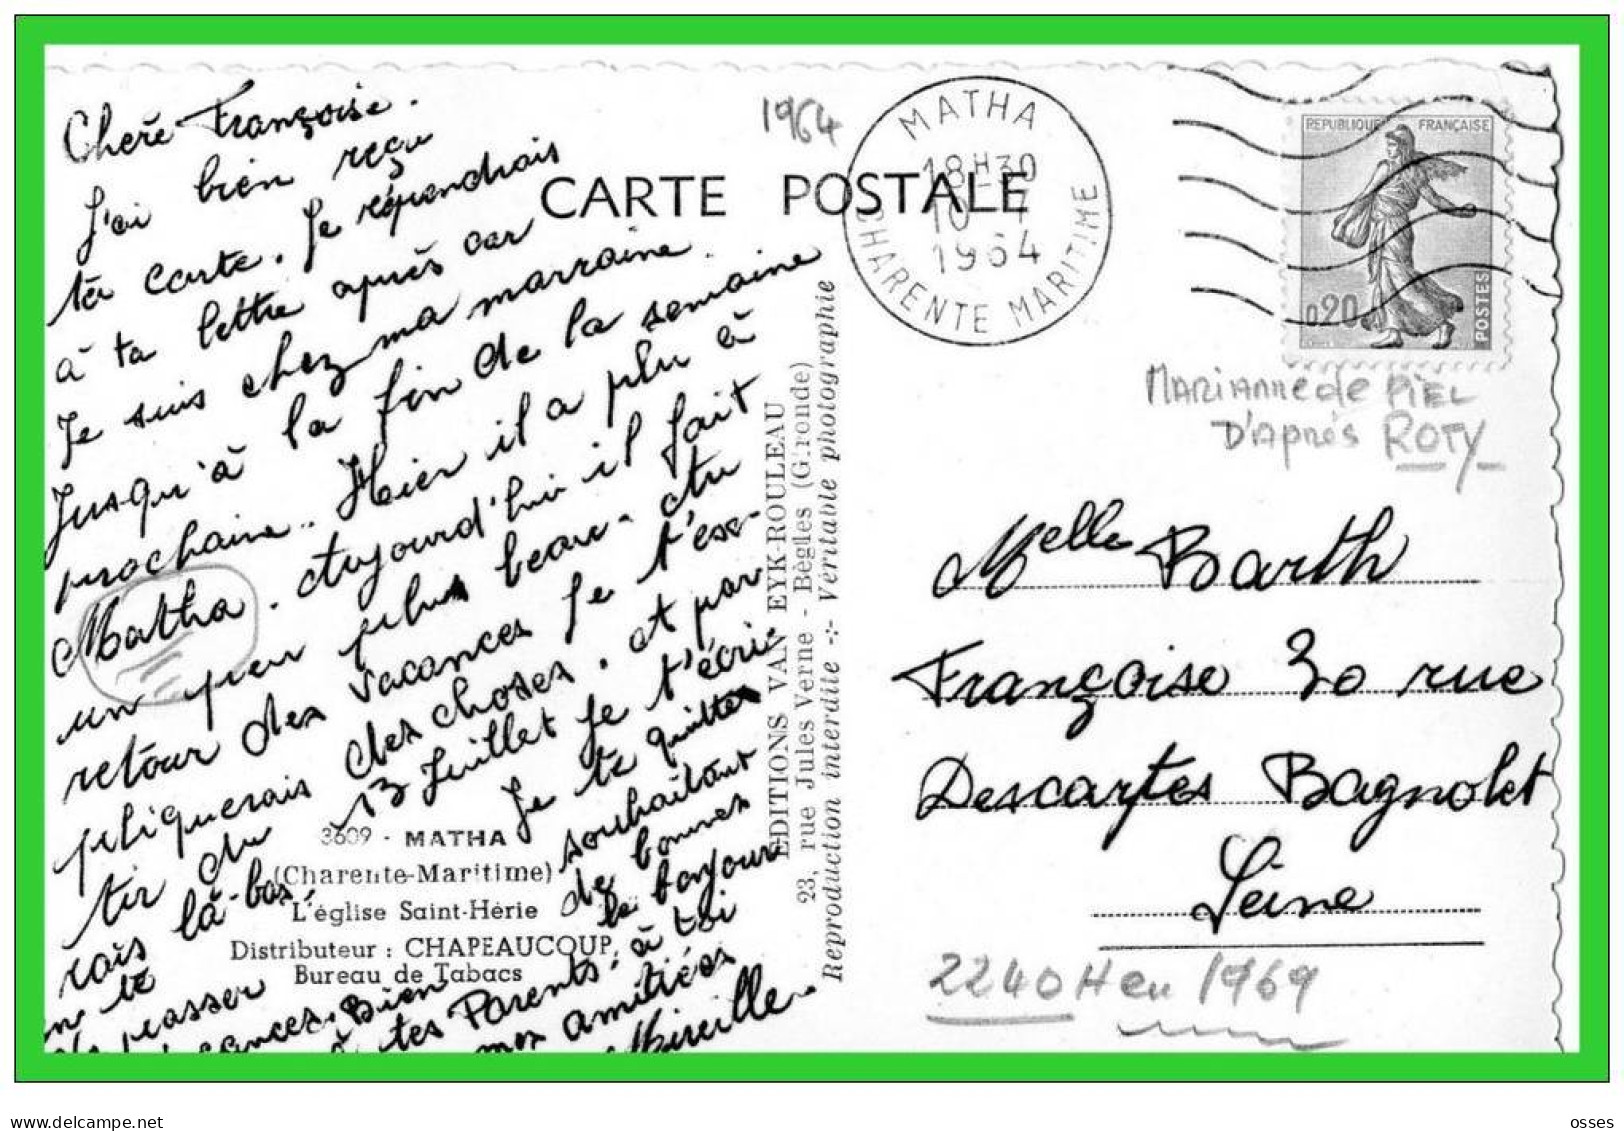 Chère Françoise.
J'ai bien reçu
ta carte. Je répondrais
à ta lettre après car
Je suis chez ma marraine.
Jusqu'à la fin de la semaine
prochaine.. Hier il a plu à
Matha. Aujourd'hui il fait
un peu plus beau. Au
retour des vacances Je t'ex-
pliquerais des choses. et par
tir du 13 Juillet Je t'écri-
rais là-bas.
Je te quitte
en te souhaitant
de passer de bonnes
vacances. Bien le bonjour
à tes Parents. à toi
mes amitiées
Mireille
3609 - MATHA
(Charente-Maritime)
L'église Saint-Hérie
Distributeur : CHAPEAUCOUP,
Bureau de Tabacs
EDITIONS VAN EYK-ROULEAU
23, rue Jules Verne - Bègles (Gironde)
Reproduction interdite -:- Véritable photographie
1964
CARTE POSTALE
MATHA
18H30
10 - 7
1964
CHARENTE MARITIME
REPUBLIQUE FRANÇAISE
0,20
POSTES
MARIANNE de PIEL
D'Après ROTY
Melle Barth
Françoise 30 rue
Descartes Bagnolet
Seine
2240H en 1969
delcampe.net
osses